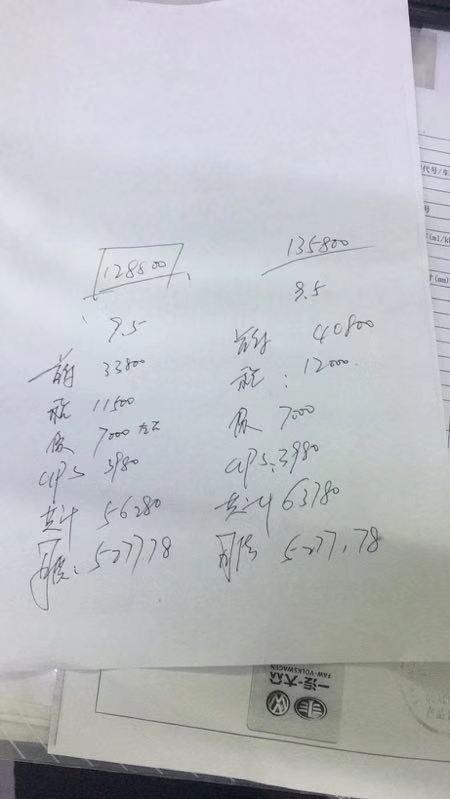 128800
9.5
首付 33800
税 11500
保 7000左右
GPS 3980
共计 56280
月供: 5277.78
135800
9.5
首付 40800
税: 12000
保 7000
GPS: 3980
共计 63780
月供 5277.78
代号/车
号
(mm)
一汽-大众
FAW-VOLKSWAGEN